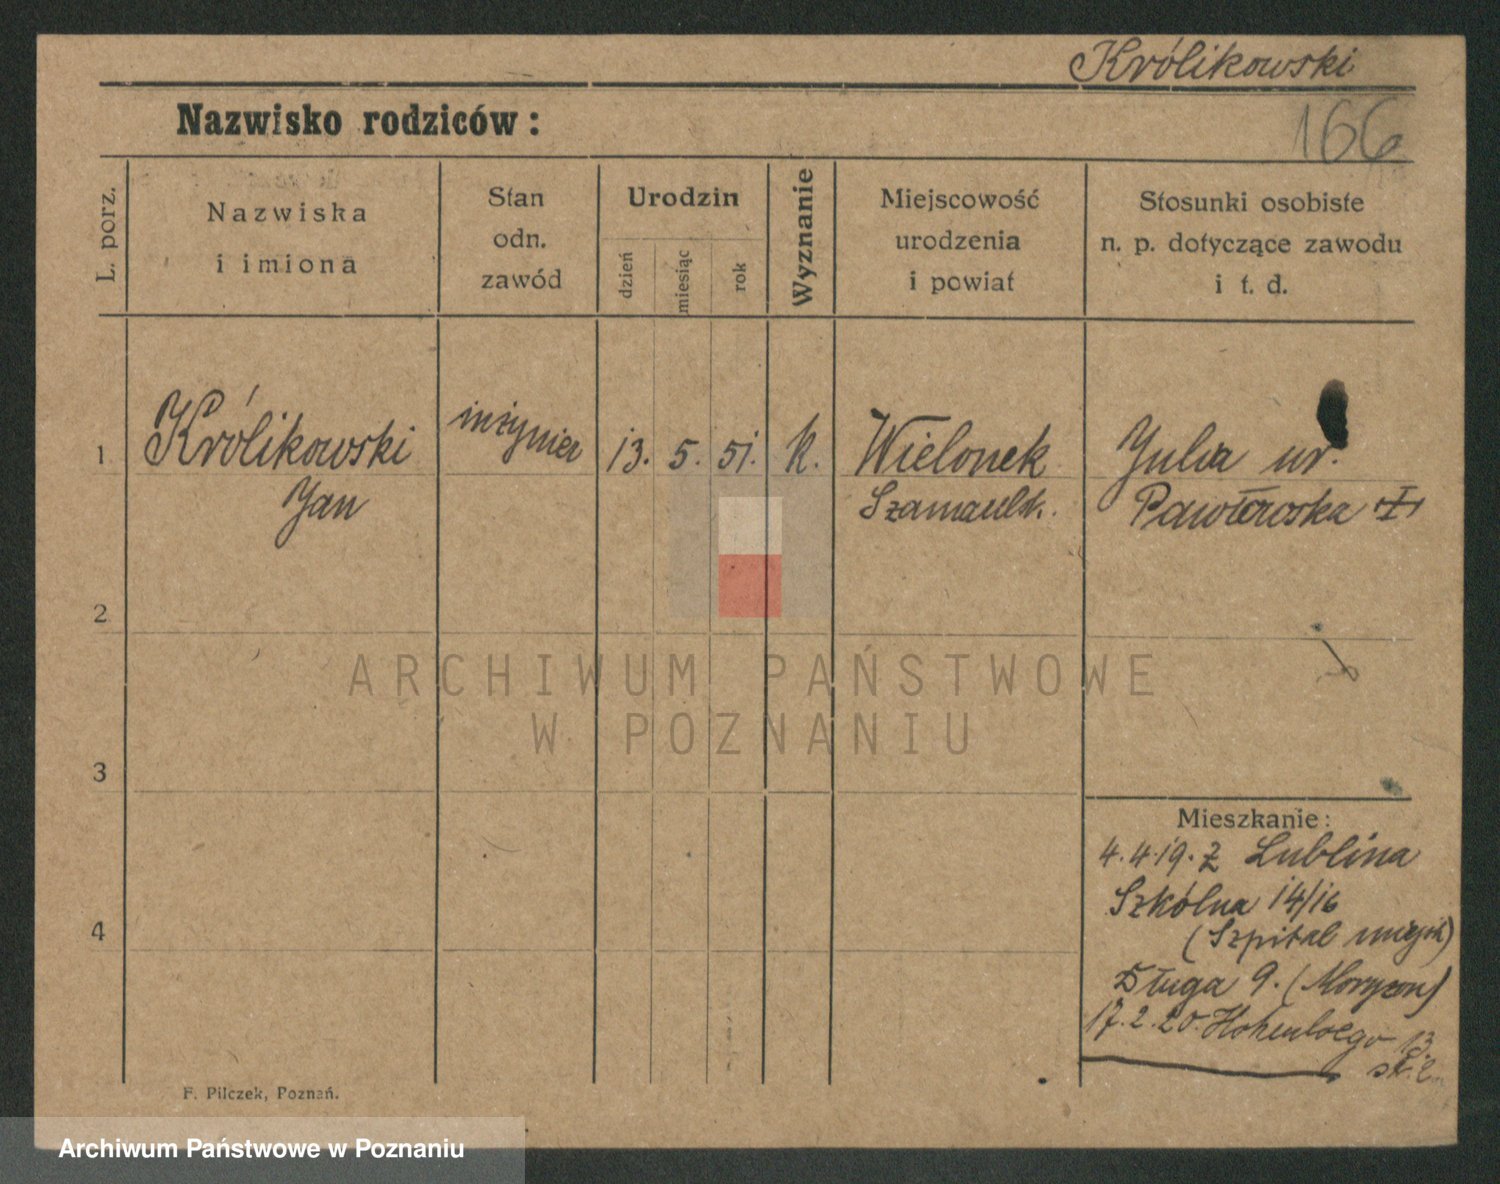 Królikowski
166
Nazwisko rodziców:
L. porz.
Nazwiska
i imiona
Stan
odn.
zawód
Urodzin
dzień
miesiąc
rok
Wyznanie
Miejscowość
urodzenia
i powiat
Stosunki osobiste
n. p. dotyczące zawodu
i t. d.
1
Królikowski
Jan
inżynier
13. 5. 51.
k.
Wielonek
Szamaulsk.
Julia ur.
Pawłowska
2
ARCHIWUM PAŃSTWOWE
W POZNANIU
3
Mieszkanie:
4.4.19. z Lublina
Szkólna 14/16
(Szpital miejsk)
Długa 9.
17.2.20. Hohenloego 13
4
F. Pilczek, Poznań.
Archiwum Państwowe w Poznaniu